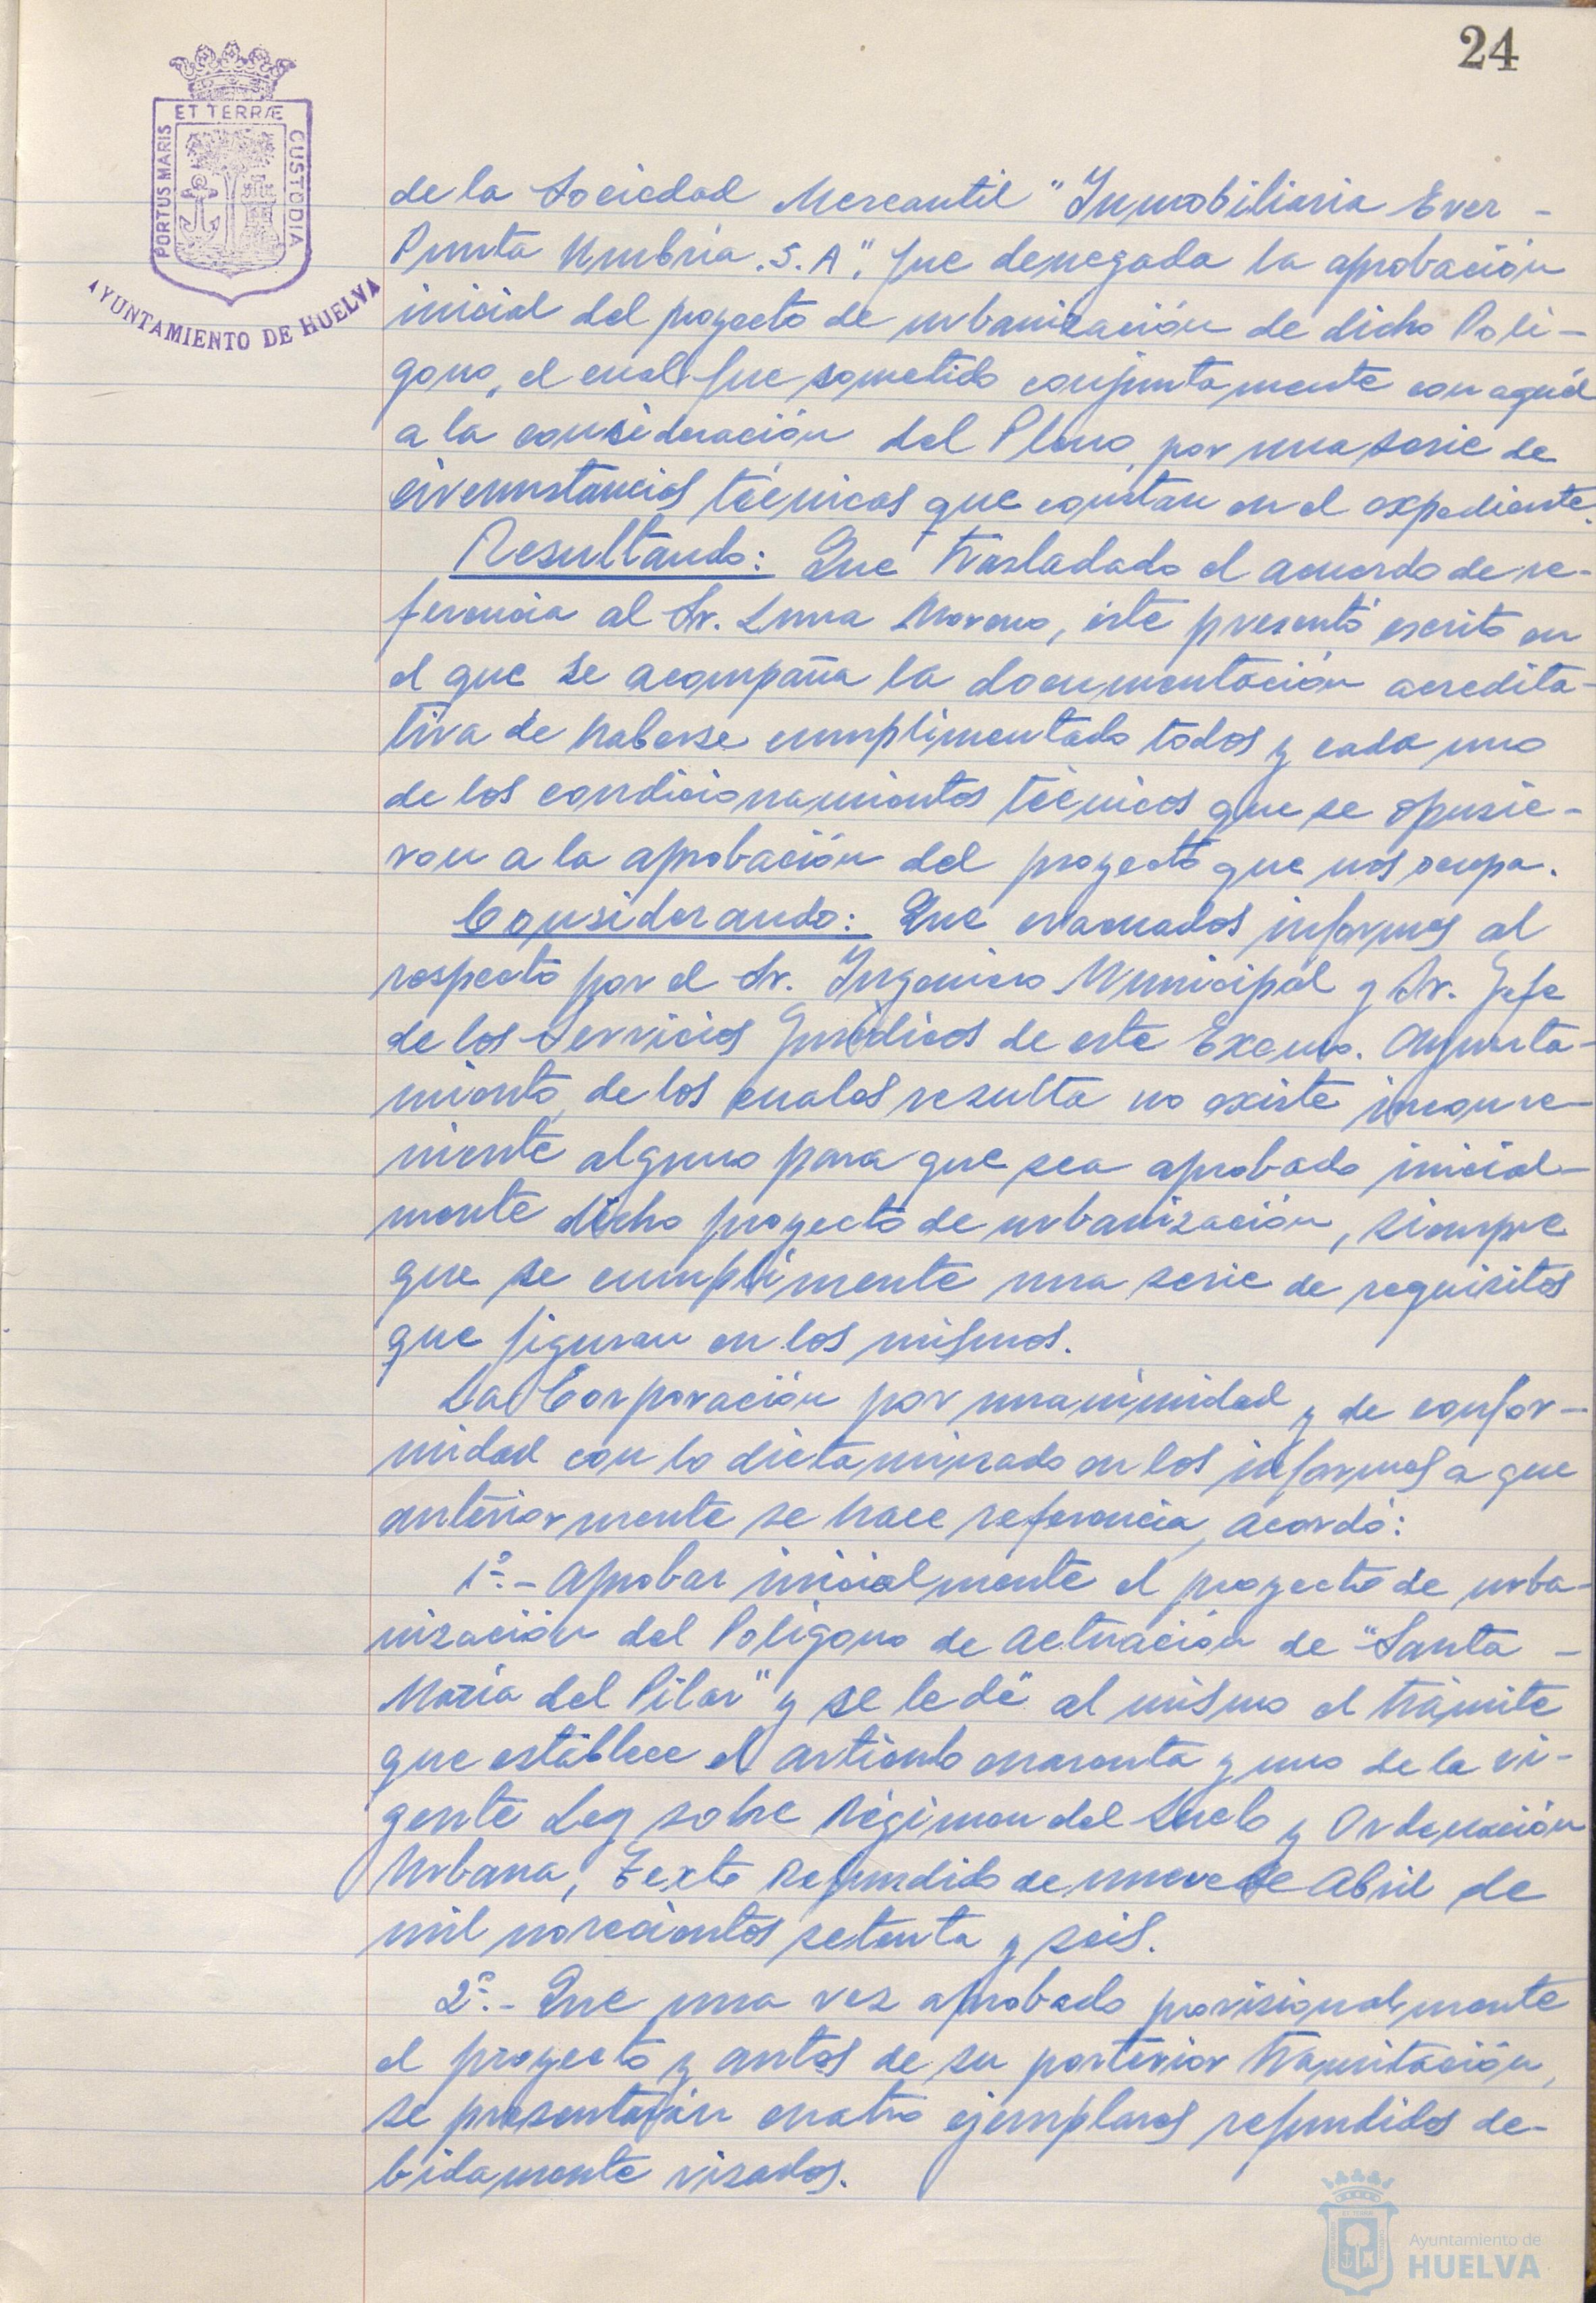 24
ET TERRÆ
PORTUS MARIS
CUSTODIA
AYUNTAMIENTO DE HUELVA
de la Sociedad Mercantil "Inmobiliaria Ever -
Punta Umbría .S.A", fue denegada la aprobación
inicial del proyecto de urbanización de dicho Polí-
gono, el cual fue sometido conjuntamente con aquél
a la consideración del Pleno, por una serie de
circunstancias técnicas que constan en el expediente.
Resultando: Que trasladado el acuerdo de re-
ferencia al Sr. Luna Moreno, éste presentó escrito en
el que se acompaña la documentación acredita-
tiva de haberse cumplimentado todos y cada uno
de los condicionamientos técnicos que se opusie-
ron a la aprobación del proyecto que nos ocupa.
Considerando: Que evacuados informes al
respecto por el Sr. Ingeniero Municipal y Sr. Jefe
de los Servicios Jurídicos de este Excmo. Ayunta-
miento, de los cuales resulta no existe inconve-
niente alguno para que sea aprobado inicial-
mente dicho proyecto de urbanización, siempre
que se cumplimente una serie de requisitos
que figuran en los mismos.
La Corporación por unanimidad y de confor-
midad con lo dictaminado en los informes a que
anteriormente se hace referencia, acordó:
1º.- Aprobar inicialmente el proyecto de urba-
nización del Polígono de Actuación de "Santa -
María del Pilar" y se le dé al mismo el trámite
que establece el artículo cuarenta y uno de la vi-
gente Ley sobre Régimen del Suelo y Ordenación
Urbana, Texto Refundido de nueve de Abril de
mil novecientos setenta y seis.
2º.- Que una vez aprobado provisionalmente
el proyecto y antes de su posterior tramitación,
se presentarán cuatro ejemplares refundidos de-
bidamente visados.
Ayuntamiento de
HUELVA